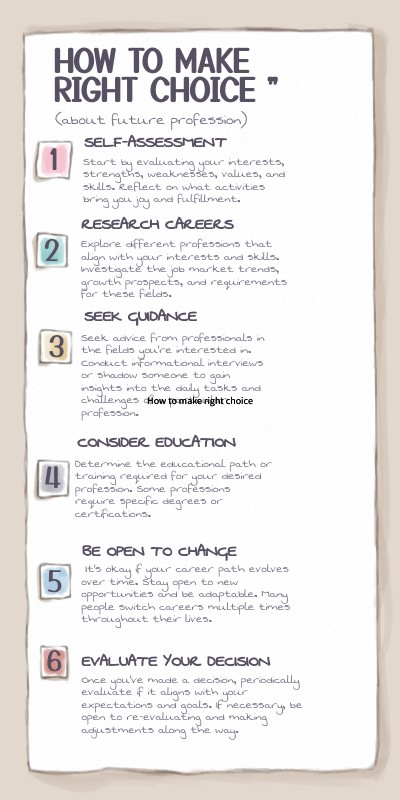 HOW TO MAKE
RIGHT CHOICE "
(about future profession)
SELF-ASSESSMENT
1
Start by evaluating your interests,
strengths, weaknesses, values, and
skills. Reflect on what activities
bring you joy and fulfillment.
RESEARCH CAREERS
2
Explore different professions that
align with your interests and skills.
Investigate the job market trends,
growth prospects, and requirements
for these fields.
SEEK GUIDANCE
3
Seek advice from professionals in
the fields you're interested in.
Conduct informational interviews
or shadow someone to gain
insights into the daily tasks and
challenges
How to make right choice
profession.
CONSIDER EDUCATION
4
Determine the educational path or
training required for your desired
profession. Some professions
require specific degrees or
certifications.
BE OPEN TO CHANGE
5
It's okay if your career path evolves
over time. Stay open to new
opportunities and be adaptable. Many
people switch careers multiple times
throughout their lives.
6
EVALUATE YOUR DECISION
Once you've made a decision, periodically
evaluate if it aligns with your
expectations and goals. If necessary, be
open to re-evaluating and making
adjustments along the way.